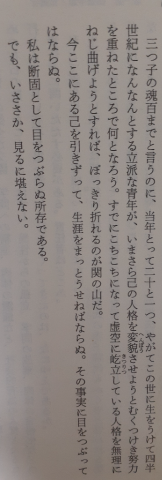 三つ子の魂百までと言うのに、当年とって二十と一つ、やがてこの世に生をうけて四半
世紀になんなんとする立派な青年が、いまさら己の人格を変貌させようとむくつけき努力
を重ねたところで何となろう。すでにこちこちになって虚空に屹立している人格を無理に
ねじ曲げようとすれば、ぽっきり折れるのが関の山だ。
今ここにある己を引きずって、生涯をまっとうせねばならぬ。その事実に目をつぶって
はならぬ。
私は断固として目をつぶらぬ所存である。
でも、いささか、見るに堪えない。